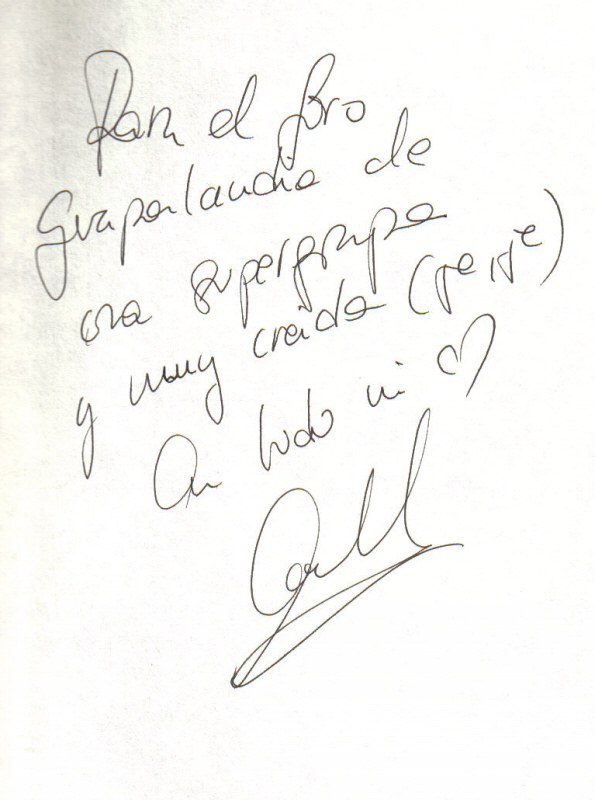 Para el foro
Guapalandia de
una superguapa
y muy creída (jeje)
Con todo mi ♡